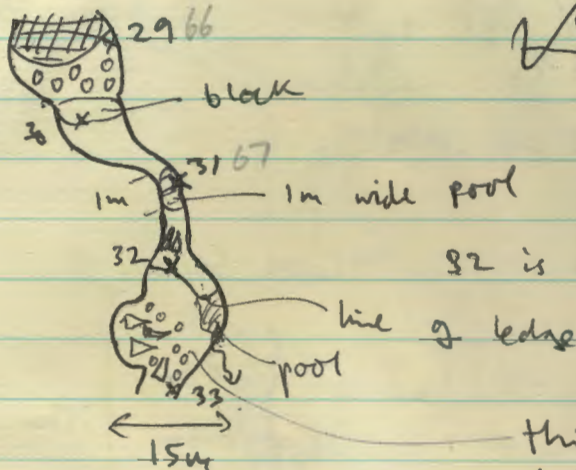 29 66
block
30
31 67
1m
1m wide pool
32
32 is
line of ledge
pool
33
15m
thi